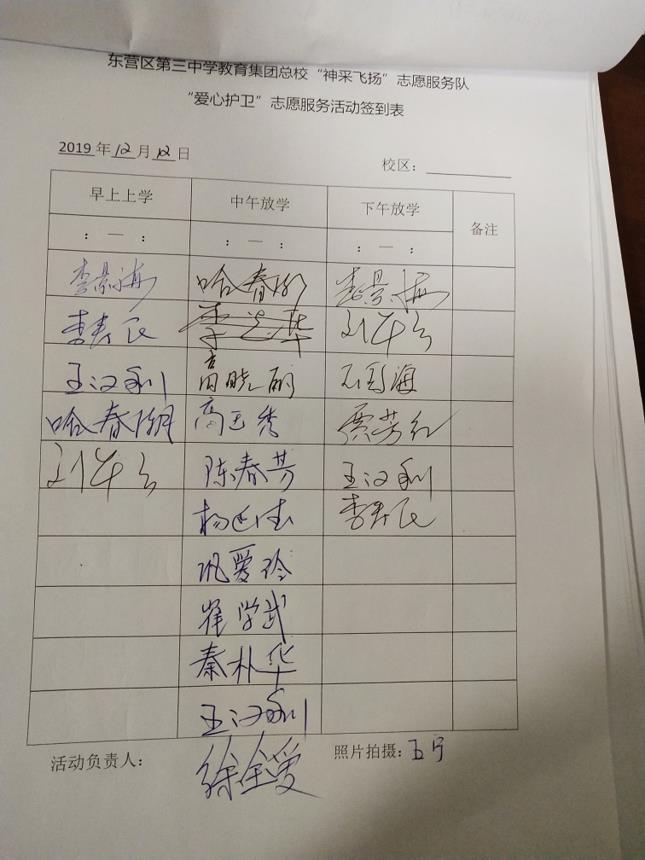 东营区第三中学教育集团总校“神采飞扬”志愿服务队
“爱心护卫”志愿服务活动签到表
2019年12月12日 校区：
早上上学 中午放学 下午放学 备注
： — ： ： — ： ： — ：
李景海 哈春阳 李景海
李寿民
王汉利 高晓丽
哈春阳 高玉秀 贾芳红
陈春芳 王汉利
李寿民
巩爱玲
崔学武
秦朴华
王汉利
活动负责人： 徐金爱 照片拍摄：